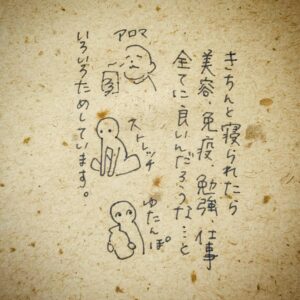 きちんと寝られたら
美容、免疫、勉強、仕事
全てに良いんだろうな…と
アロマ
ストレッチ
ゆたんぽ
いろいろためしています。